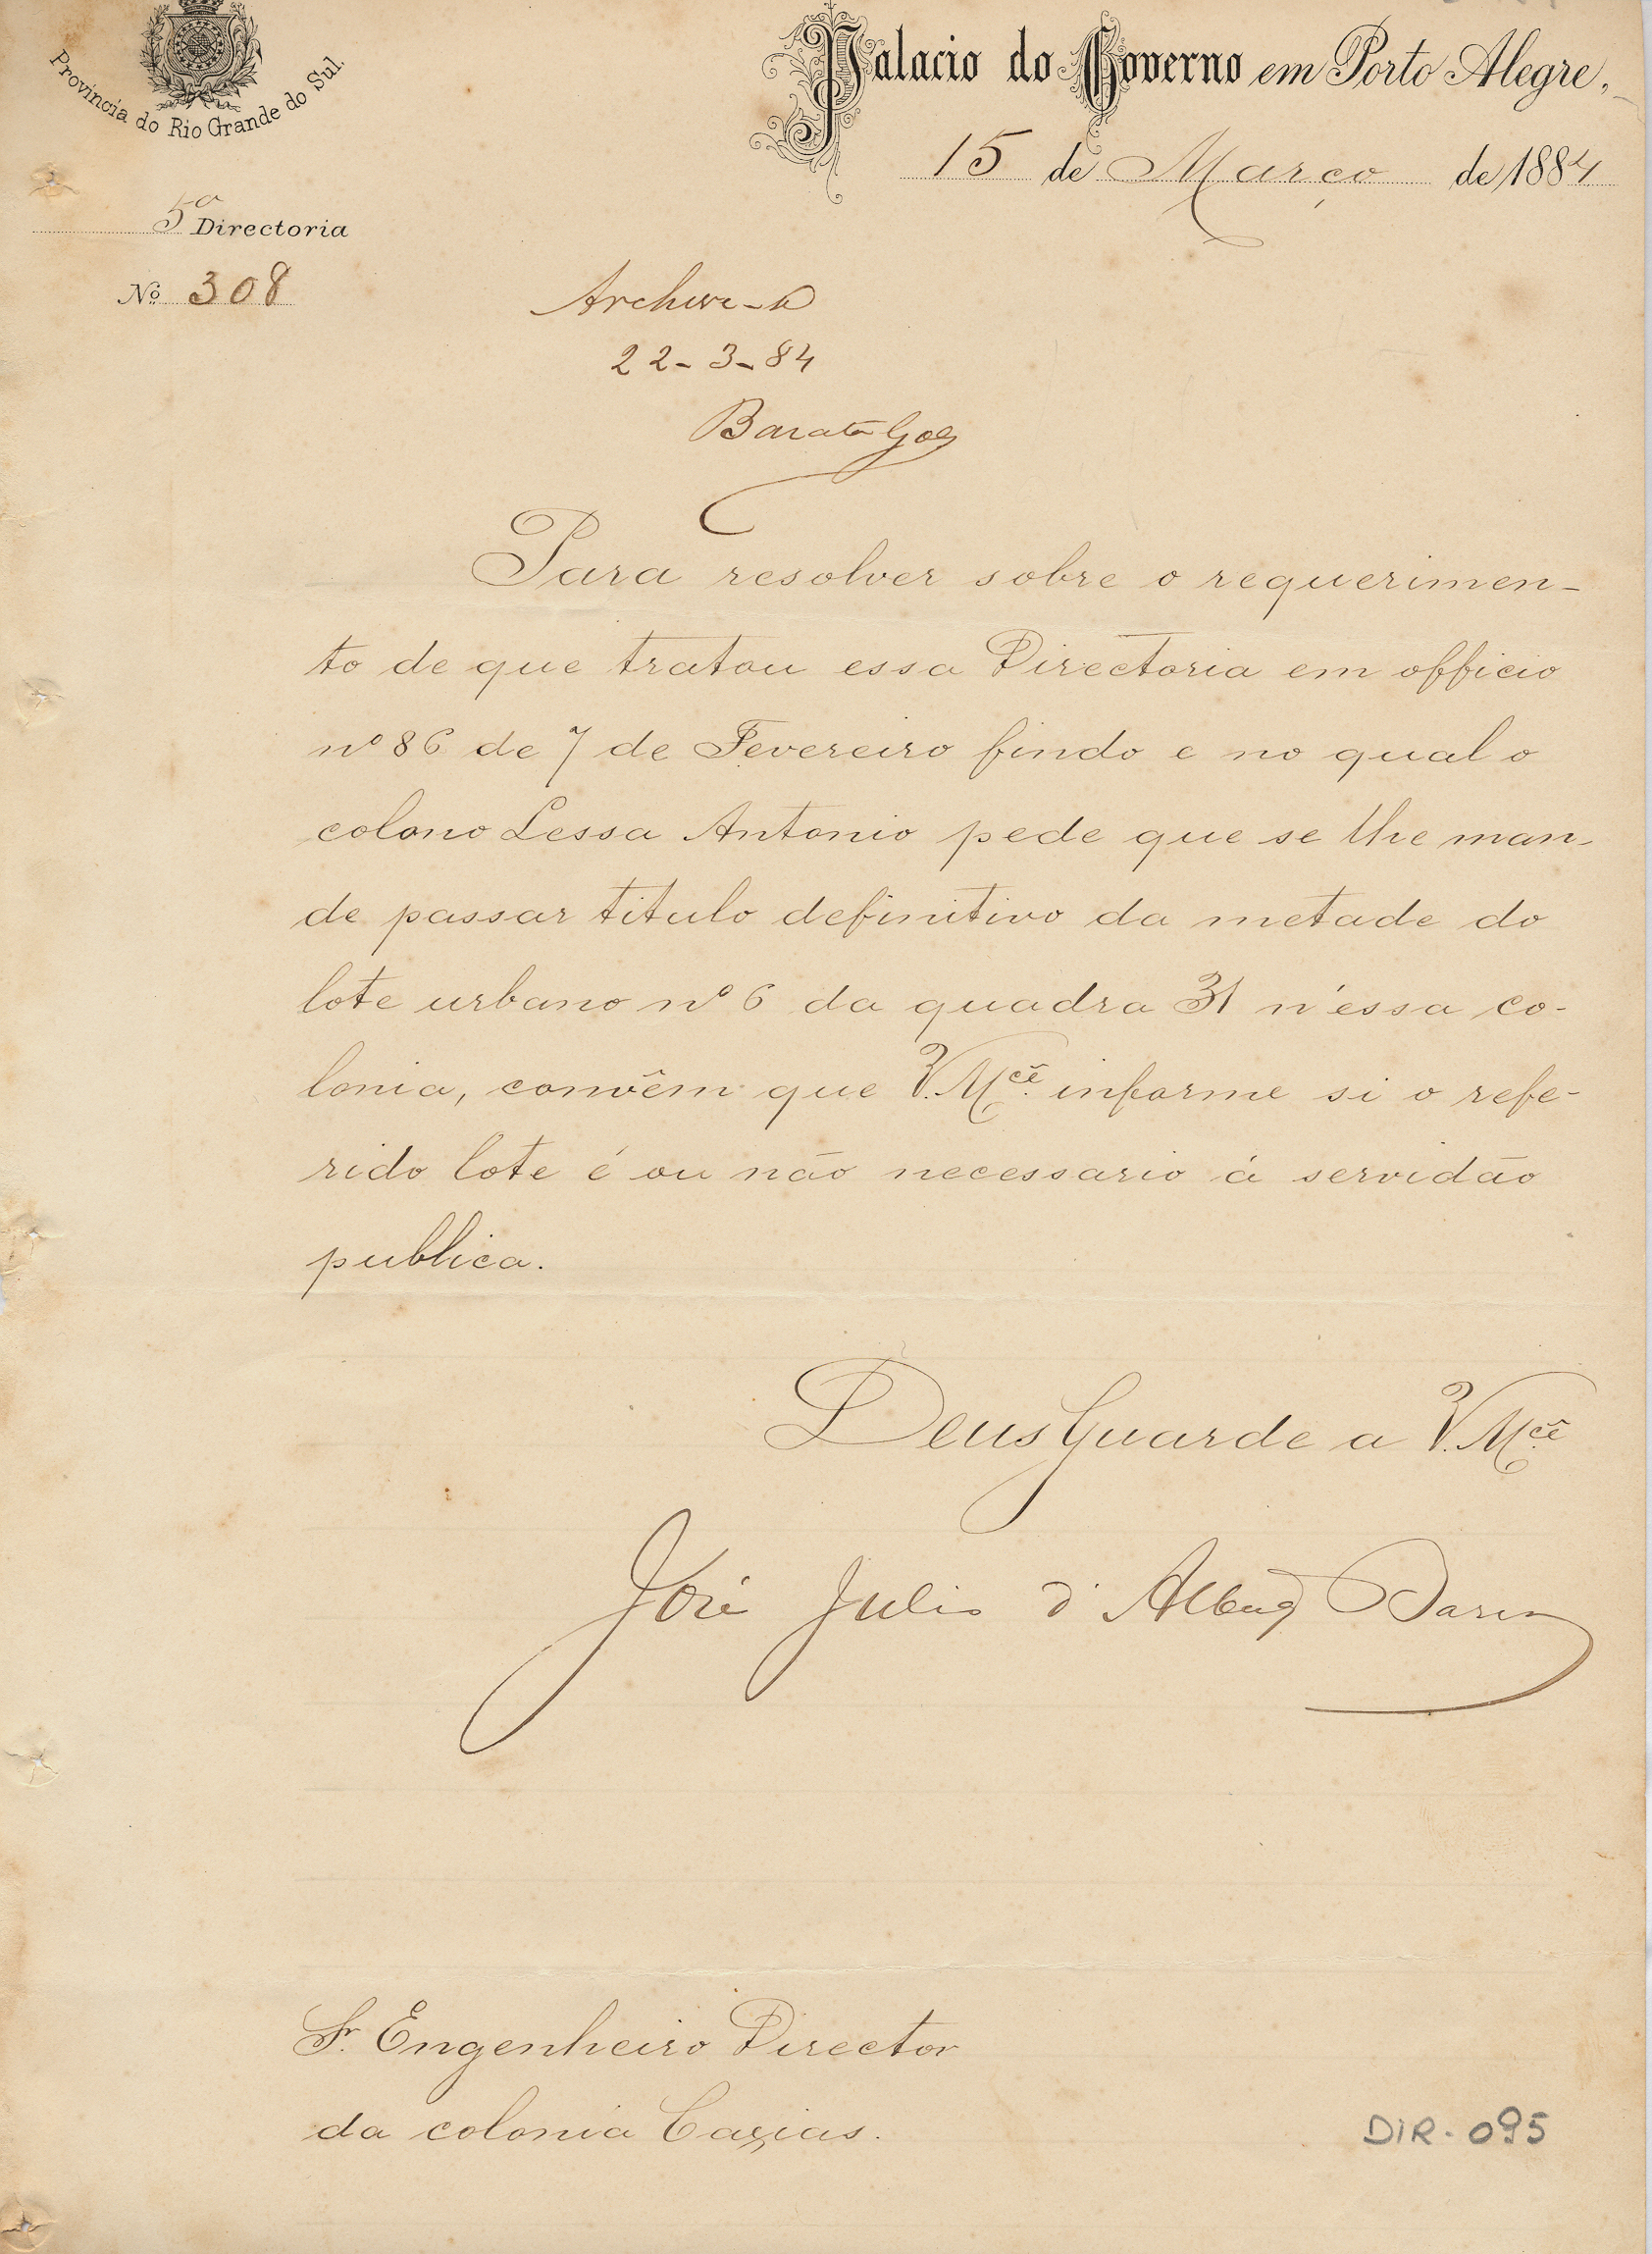 Provincia do Rio Grande do Sul.
Palacio do Governo em Porto Alegre,
15 de Março de 1884
5ª Directoria
Nº 308
Archive-se
22-3-84
Barata Goes
Para resolver sobre o requerimen-
to de que tratou essa Directoria em officio
nº 86 de 7 de Fevereiro findo e no qual o
colono Lessa Antonio pede que se lhe man-
de passar titulo definitivo da metade do
lote urbano nº 6 da quadra 31 n'essa co-
lonia, convêm que V. Mcê. informe si o refe-
rido lote é ou não necessario á servidão
publica.
Deus Guarde a V. Mcê
José Julio d'Albuq Barros
Sr. Engenheiro Director
da colonia Caxias.
DIR. 095